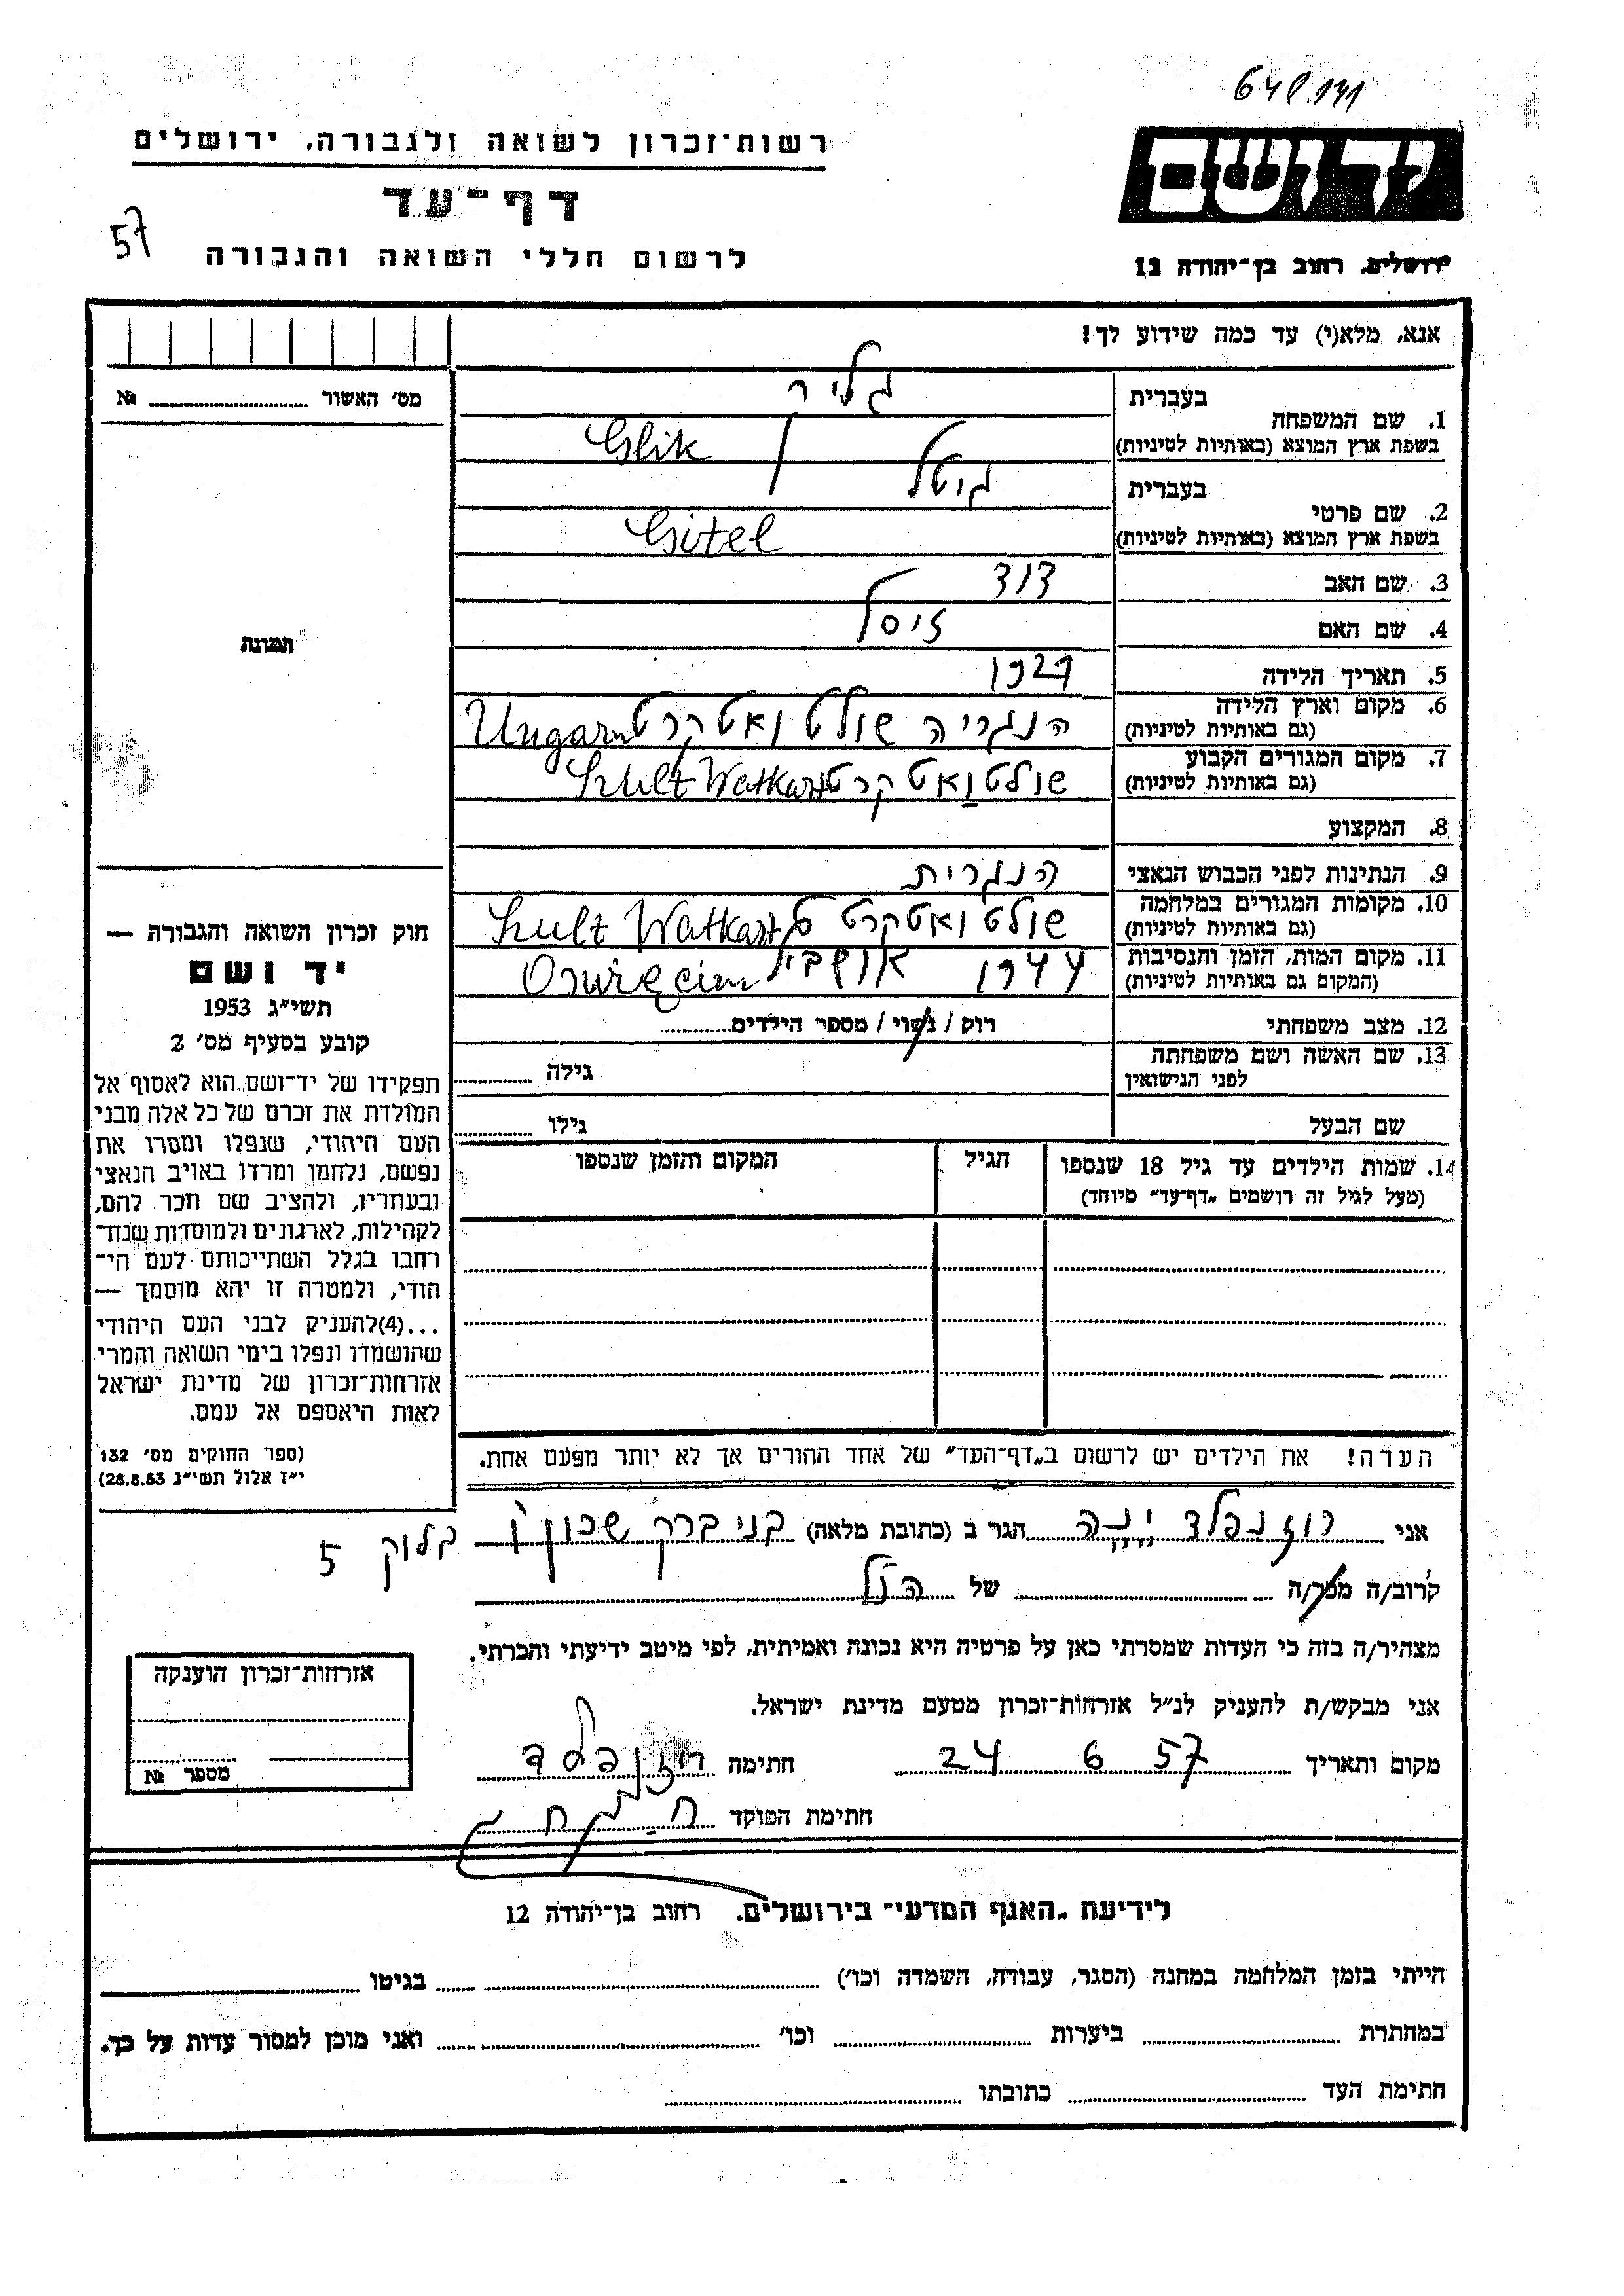 רשות־זכרון לשואה ולגבורה, ירושלים
דף־עד
57
לרשום חללי השואה והגבורה
יד ושם
ירושלים, רחוב בן־יהודה 12
אנא, מלא(י) עד כמה שידוע לך!
מס' האשור № 
תמונה
חוק זכרון השואה והגבורה —
יד ושם
תשי"ג 1953
קובע בסעיף מס' 2
תפקידו של יד־ושם הוא לאסוף אל
המולדת את זכרם של כל אלה מבני
העם היהודי, שנפלו ומסרו את
נפשם, נלחמו ומרדו באויב הנאצי
ובעוזריו, ולהציב שם וזכר להם,
לקהילות, לארגונים ולמוסדות שנח־
רחבו בגלל השתייכותם לעם הי־
הודי, ולמטרה זו יהא מוסמך —
...(4)להעניק לבני העם היהודי
שהושמדו ונפלו בימי השואה והמרי
אזרחות־זכרון של מדינת ישראל
לאות היאספם אל עמם.
(ספר החוקים מס' 132
י"ז אלול תשי"ג 28.8.53)
1. שם המשפחה בעברית גליק
בשפת ארץ המוצא (באותיות לטיניות) Glik
2. שם פרטי בעברית גיטל
בשפת ארץ המוצא (באותיות לטיניות) Gitel
3. שם האב דוד
4. שם האם זיסל
5. תאריך הלידה 1927
6. מקום וארץ הלידה הנגריה שולט ואטקרט Ungarn
(גם באותיות לטיניות)
7. מקום המגורים הקבוע שולט ואטקרט
(גם באותיות לטיניות)
8. המקצוע
9. הנתינות לפני הכבוש הנאצי הנגרית
10. מקומות המגורים במלחמה שולט ואטקרט
(גם באותיות לטיניות)
11. מקום המות, הזמן והנסיבות 1944
(המקום גם באותיות לטיניות)
12. מצב משפחתי רוק / נשוי / מספר הילדים
13. שם האשה ושם משפחתה גילה
לפני הנישואין
שם הבעל גילו
14. שמות הילדים עד גיל 18 שנספו הגיל המקום והזמן שנספו
(מעל לגיל זה רושמים "דף־עד" מיוחד)
הערה! את הילדים יש לרשום ב"דף־העד" של אחד ההורים אך לא יותר מפעם אחת.
אני רוזנפלד הגר ב (כתובת מלאה) בני ברק שכון ו
בלוק 5
קרוב/ה מכר/ה של הנ"ל
מצהיר/ה בזה כי העדות שמסרתי כאן על פרטיה היא נכונה ואמיתית, לפי מיטב ידיעתי והכרתי.
אני מבקש/ת להעניק לנ"ל אזרחות־זכרון מטעם מדינת ישראל.
מקום ותאריך 24 6 57 חתימה רוזנפלד
חתימת הפוקד
אזרחות־זכרון הוענקה
מספר №
לידיעת "האגף המדעי" בירושלים, רחוב בן־יהודה 12
הייתי בזמן המלחמה במחנה (הסגר, עבודה, השמדה וכו') בגיטו
במחתרת ביערות וכו' ואני מוכן למסור עדות על כך.
חתימת העד כתובתו